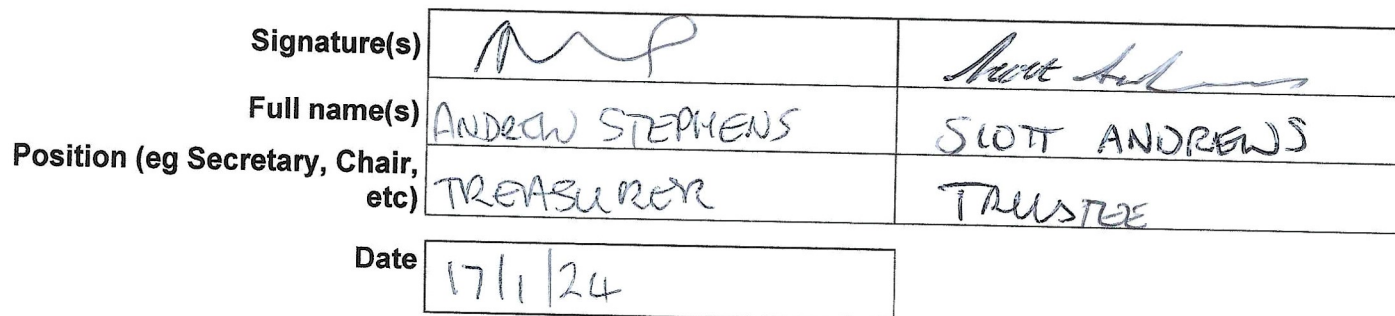 Signature(s)
Full name(s) ANDREW STEPHENS SCOTT ANDREWS
Position (eg Secretary, Chair,
etc) TREASURER TRUSTEE
Date 17/1/24